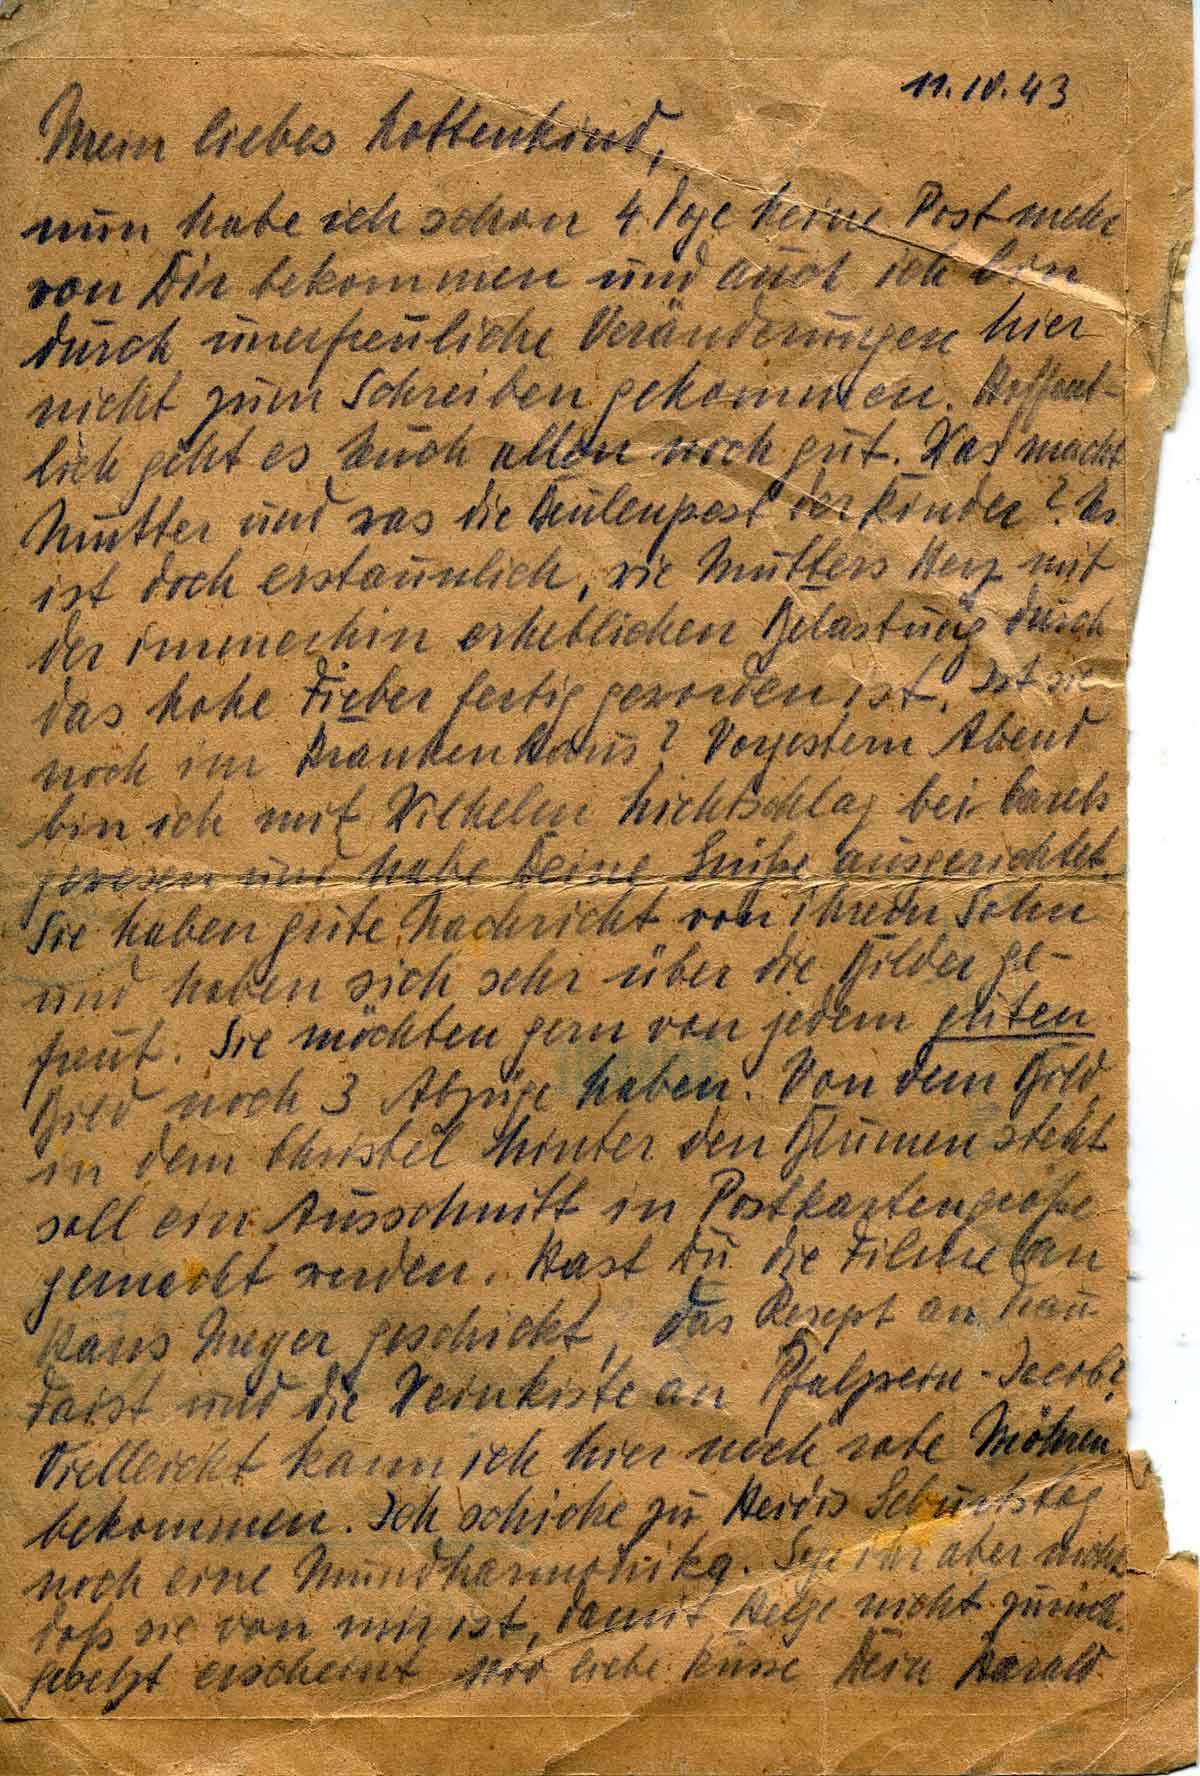 11.10.43
Mein liebes Lottenkind,
nun habe ich schon 4 Tage keine Post mehr
von Dir bekommen und auch ich bin
durch unerfreuliche Veränderungen hier
nicht zum Schreiben gekommen. Hoffent-
lich geht es Euch allen noch gut. Was macht
Mutter und was die Beulenpest der Kinder? Es
ist doch erstaunlich, wie Mutters Herz mit
der immerhin erheblichen Belastung durch
das hohe Fieber fertig geworden ist. Ist sie
noch im Krankenhaus? Vorgestern Abend
bin ich mit Wilhelm Lichtschlag bei
gewesen und habe Deine Grüße ausgerichtet.
Sie haben gute Nachricht von ihrem Sohn
und haben sich sehr über die Bilder ge-
freut. Sie möchten gern von jedem guten
Bild noch 3 Abzüge haben. Von dem Bild,
in dem Christel hinter den Blumen steht
soll ein Ausschnitt in Postkartengröße
gemacht werden. Hast Du die Filme an
Hans Meyer geschickt, das Rezept an Frau
Faist und die Weinkiste an Pfalzwein-Jacob?
Vielleicht kann ich hier noch rote Möhren
bekommen. Ich schicke zu Heidis Geburtstag
noch eine Mundharmonika. Sage ihr aber nicht,
daß sie von mir ist, damit Helge nicht zurück-
gesetzt erscheint 1000 liebe Küsse Dein Harald